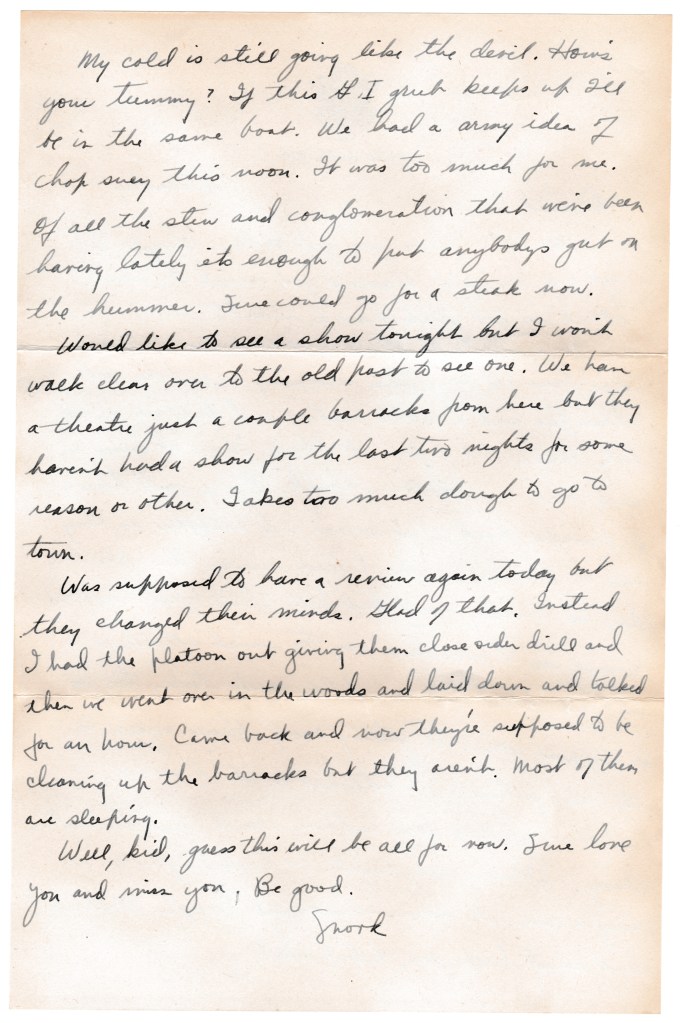 My cold is still going like the devil. How's
your tummy? If this G.I grub keeps up I'll
be in the same boat. We had a army idea of
chop suey this noon. It was too much for me.
Of all the stew and conglomeration that we've been
having lately its enough to put anybodys gut on
the hummer. Sure could go for a steak now.
Would like to see a show tonight but I won't
walk clear over to the old post to see one. We have
a theatre just a couple barracks from here but they
haven't had a show for the last two nights for some
reason or other. Takes too much dough to go to
town.
Was supposed to have a review again today but
they changed their minds. Glad of that. Instead
I had the platoon out giving them close order drill and
then we went over in the woods and laid down and talked
for an hour. Came back and now they're supposed to be
cleaning up the barracks but they aren't. Most of them
are sleeping.
Well, kid, guess this will be all for now. Sure love
you and miss you, Be good.
Snork